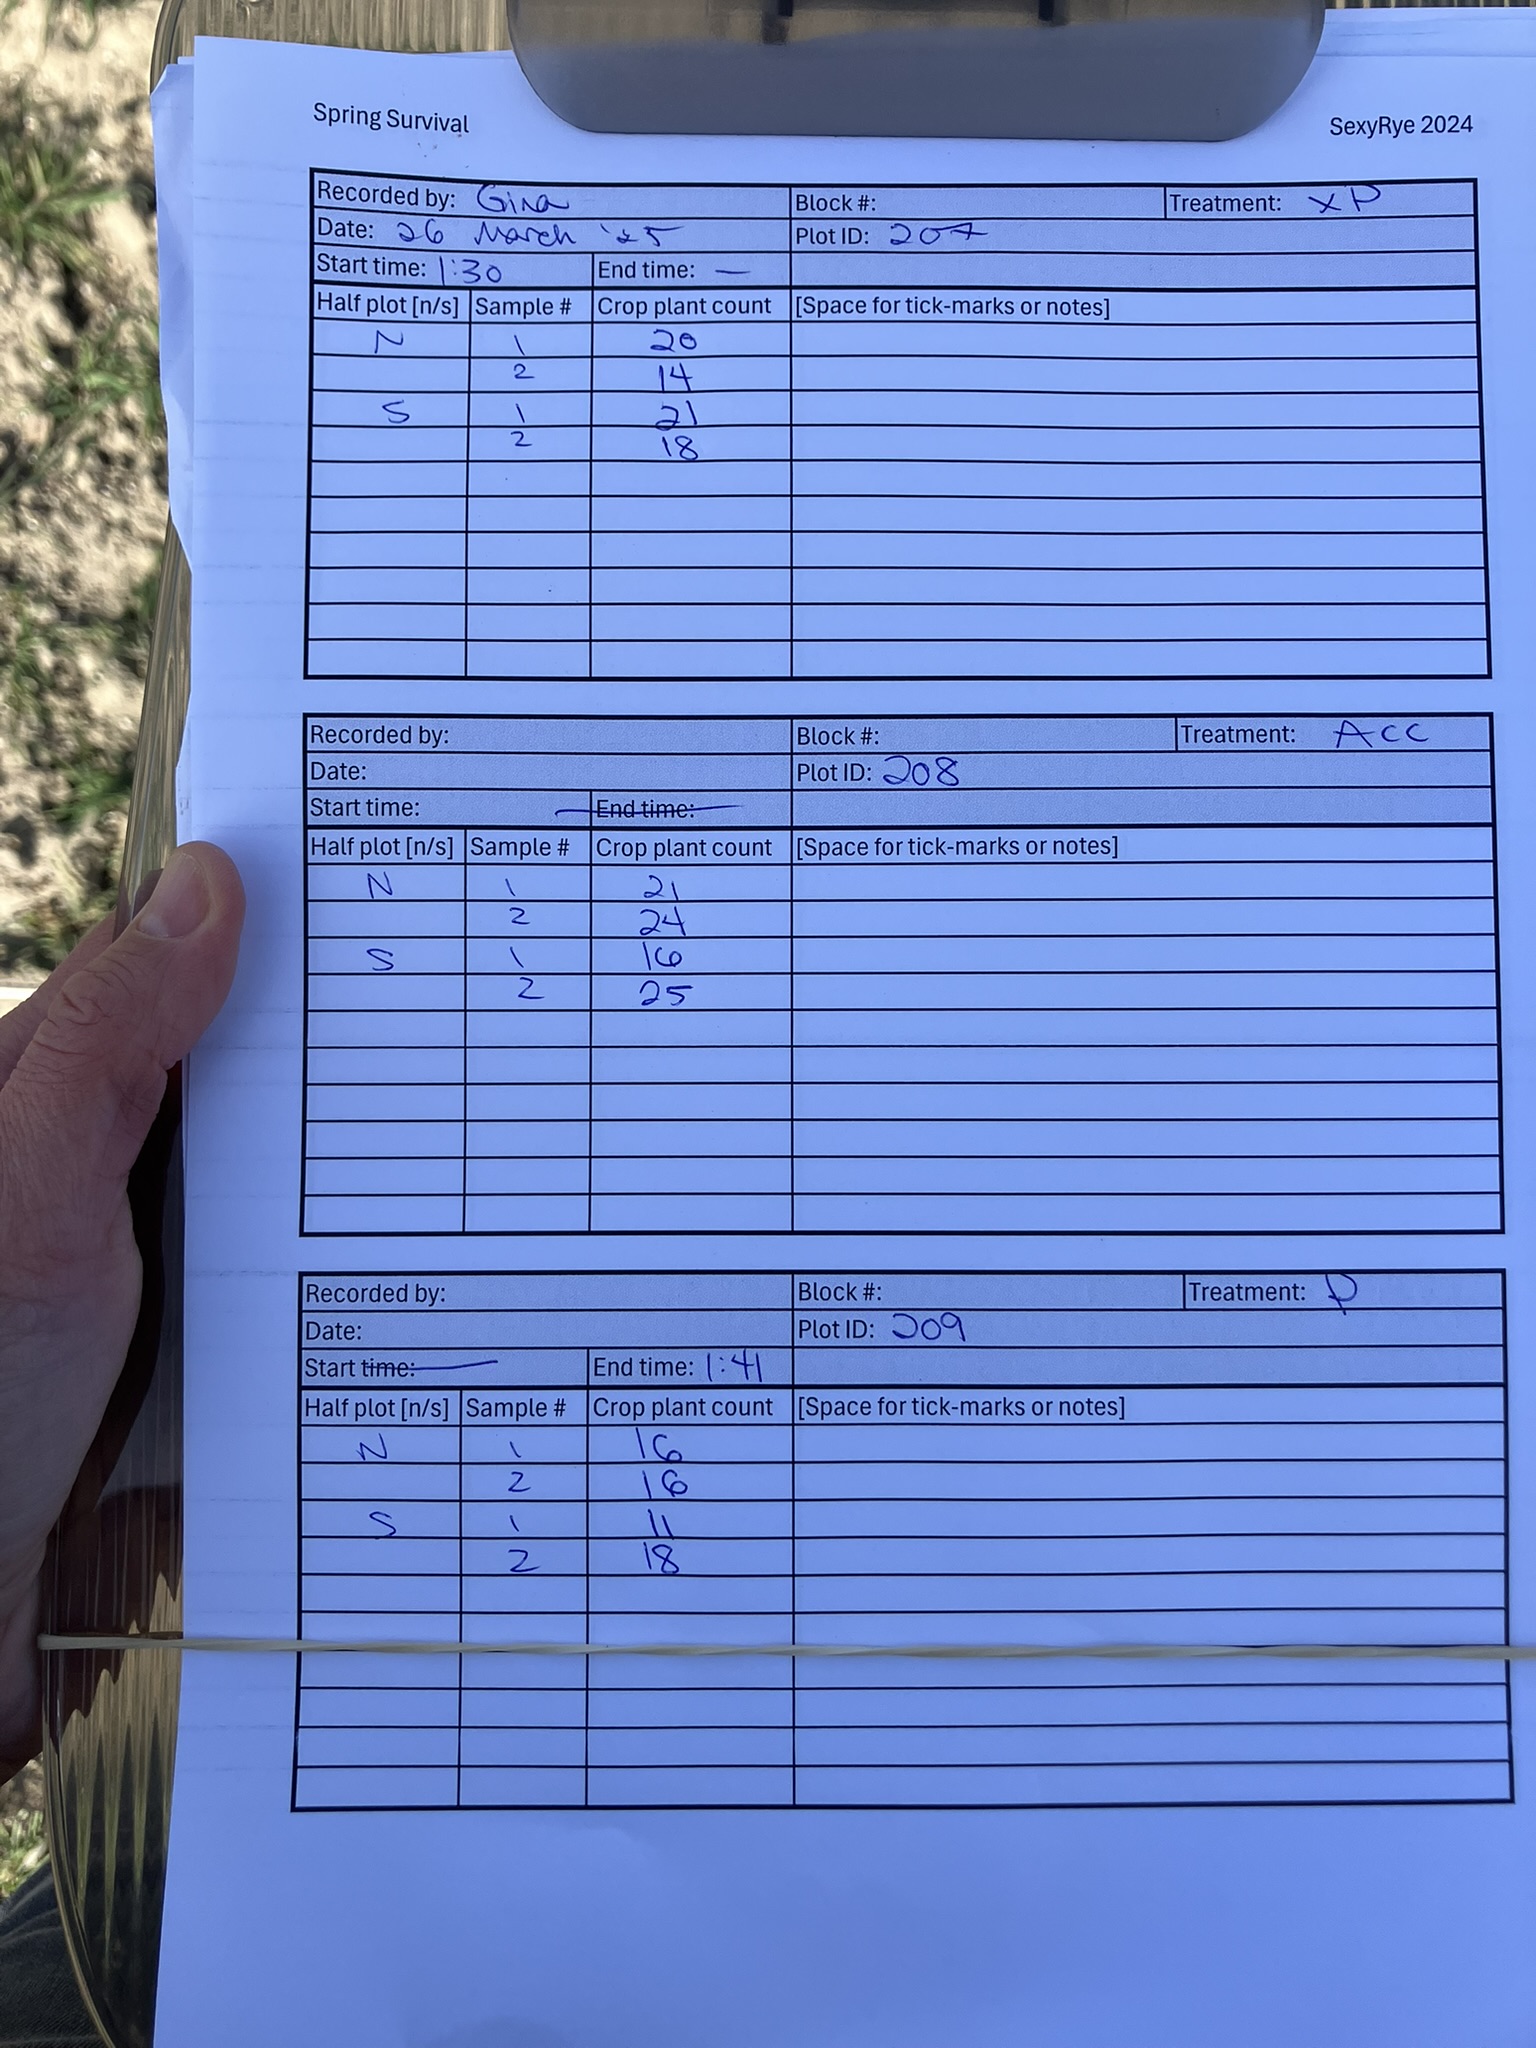 Spring Survival SexyRye 2024
Recorded by: Gina Block #: Treatment: XP
Date: 26 March '25 Plot ID: 207
Start time: 1:30 End time: —
Half plot [n/s] Sample # Crop plant count [Space for tick-marks or notes]
N 1 20
2 14
S 1 21
2 18
Recorded by: Block #: Treatment: ACC
Date: Plot ID: 208
Start time: End time:
Half plot [n/s] Sample # Crop plant count [Space for tick-marks or notes]
N 1 21
2 24
S 1 16
2 25
Recorded by: Block #: Treatment: P
Date: Plot ID: 209
Start time: End time: 1:41
Half plot [n/s] Sample # Crop plant count [Space for tick-marks or notes]
N 1 16
2 16
S 1 11
2 18